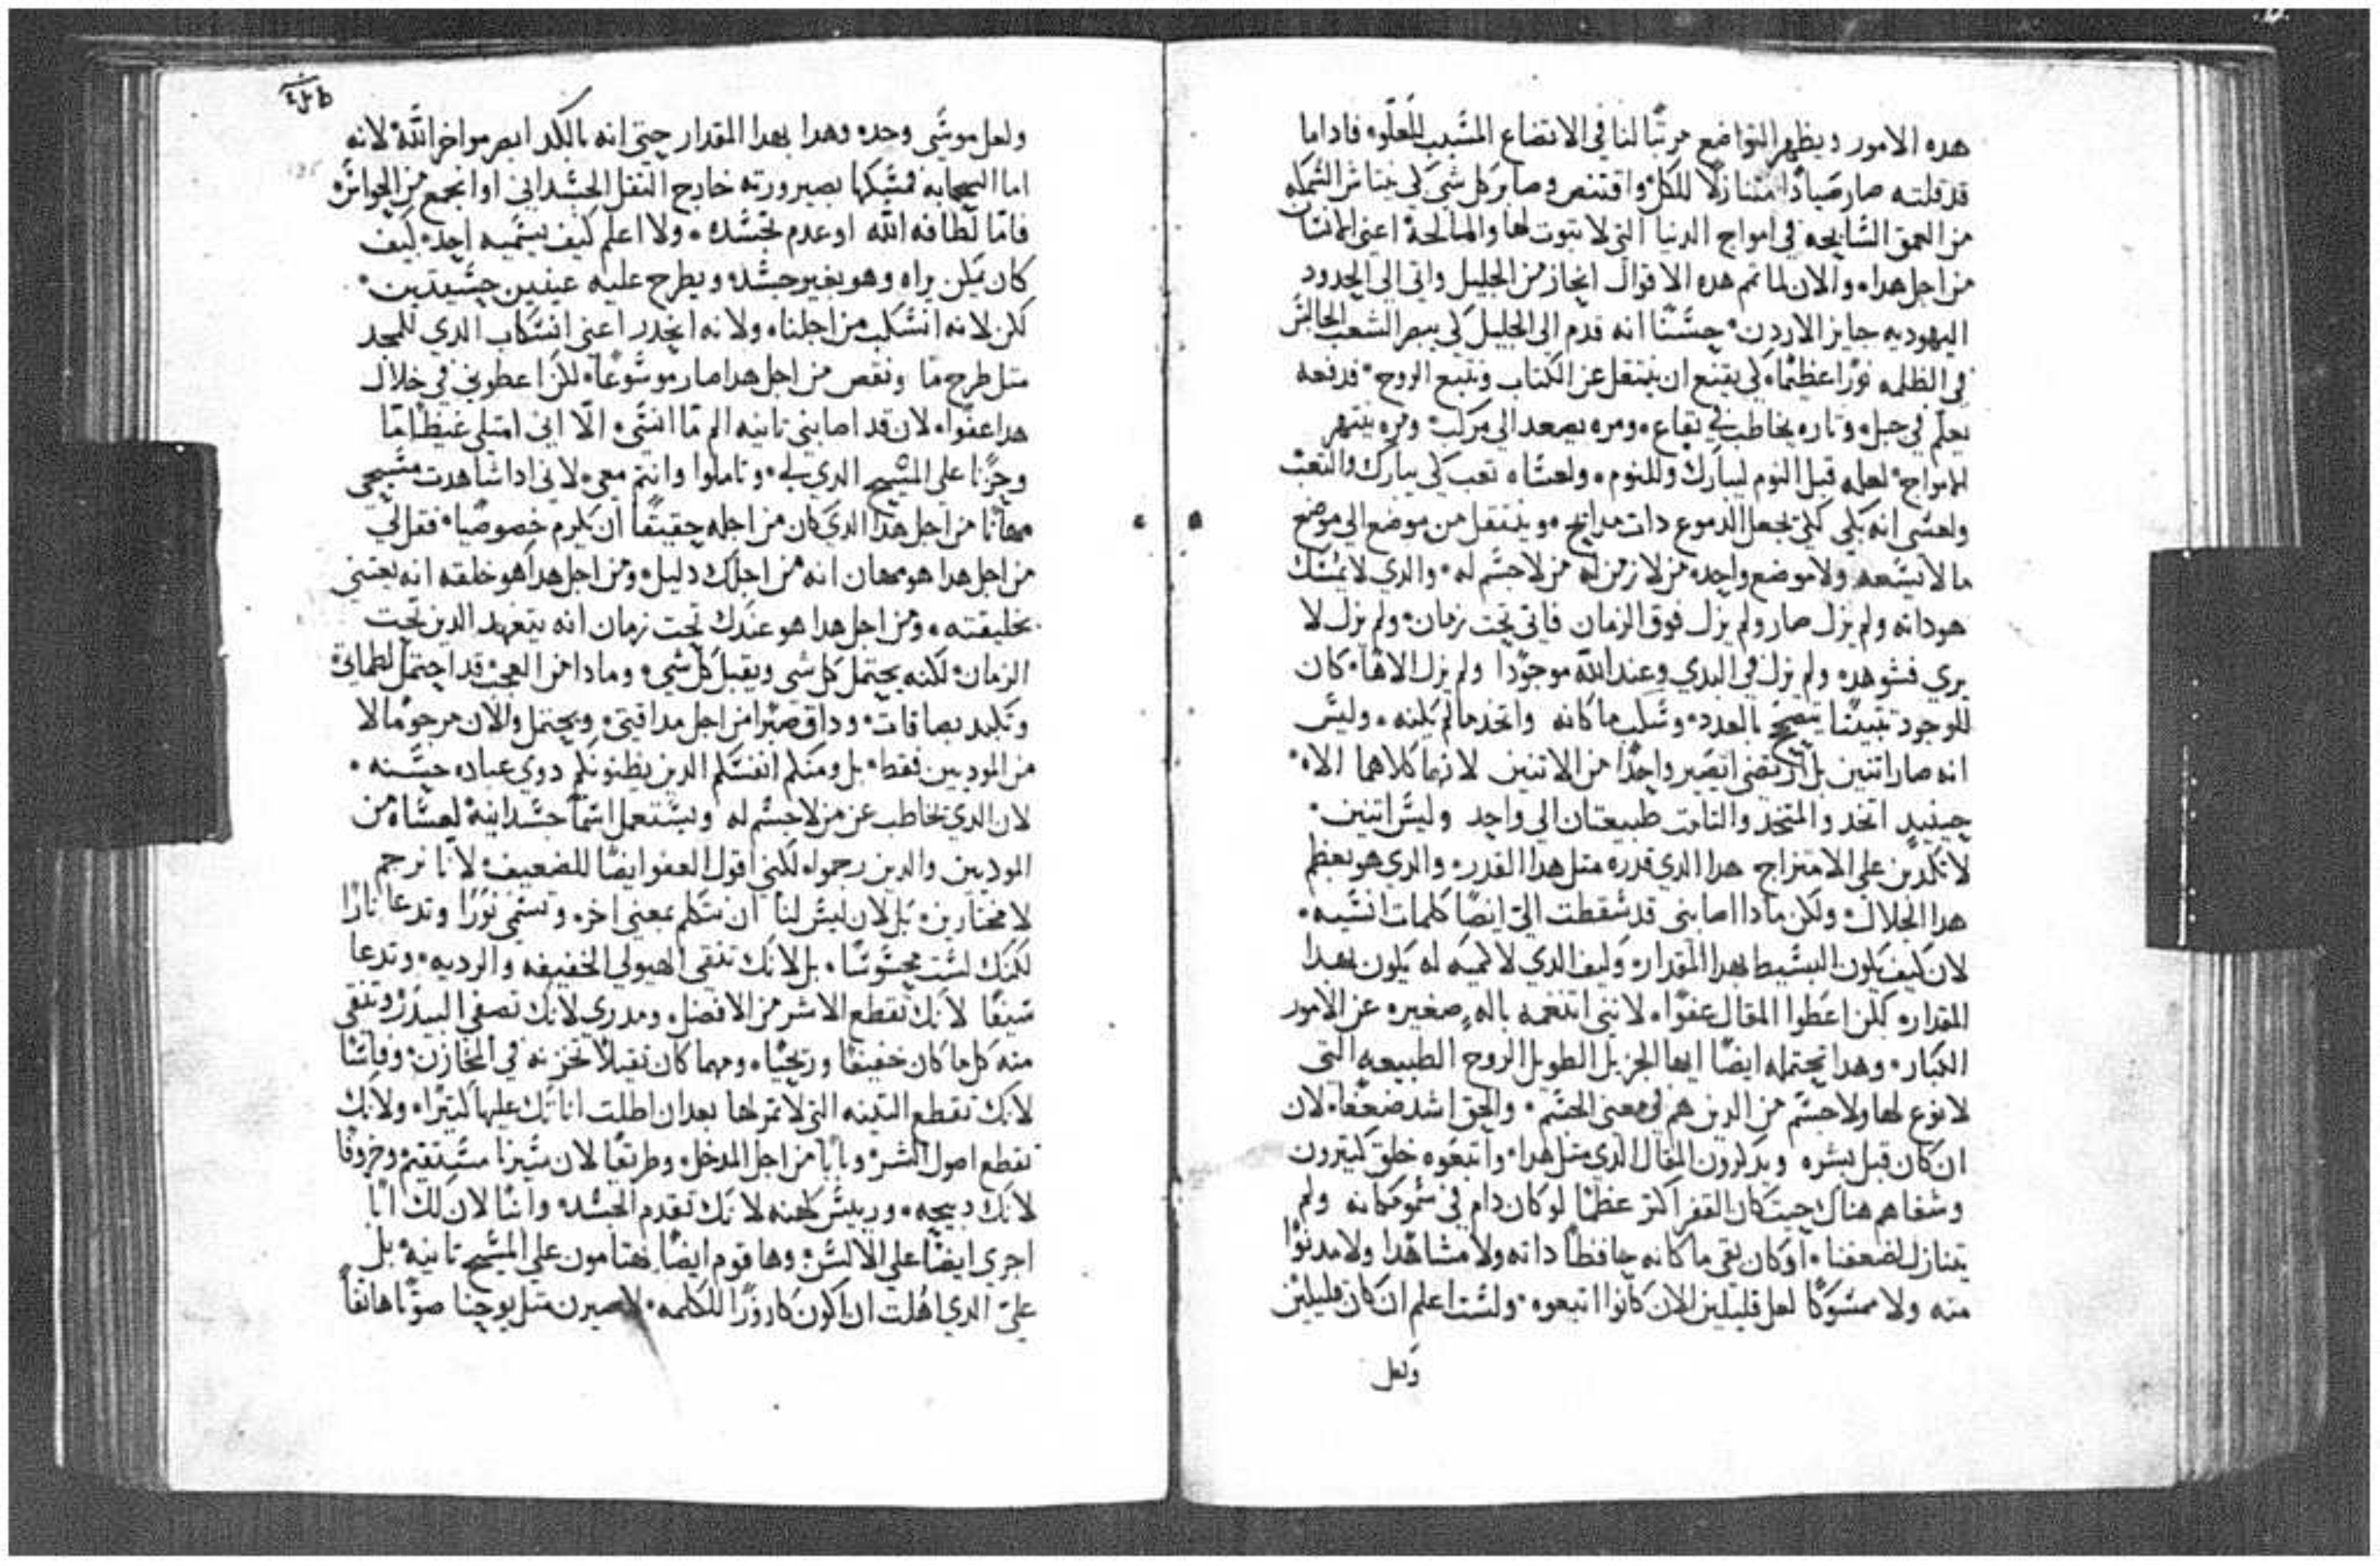 هده الامور ويظهر التواضع مرتبًا لنا في الاتضاع المسبب للعلو، فاداما
قد قلته صار صيادًا متنازلًا للكل واقتنص وصابر كل شي لكي يناشر السمكه
من العمق السابحه في امواج الدنيا التي لا تبوت لها والمالحة اعني الانسان
من اجل هدا، والان لما تم هده الاقوال انحاز من الجليل واتي الي الحدود
اليهوديه جايز الاردن، حسنًا انه قدم الي الجليل لكي يبصر الشعب الجالس
في الظلمه نورًا عظيمًا، لكي يقنع ان ينتقل عن الكتاب ونتبع الروح، فدفعه
يعلم في جبل، وتاره يخاطب في بقاع، ومره يصعد الي مركب، ومره ينتهر
الامواج، لعله قبل النوم ليبارك وللنوم، ولعساه تعب لكي يبارك والتعب
ولعسي انه بكي لكي يجعل الدموع دات مدايح، وينتقل من موضع الي موضع
ما لا يسعه ولا موضع واحد، من لا زمن له من لا جسم له، والدي لا يمسك
هو داته ولم يزل صار ولم يزل فوق الزمان فاتي تحت زمان، ولم يزل لا
يري فشوهد، ولم يزل في البدي وعند الله موجودًا ولم يزل الاهًا، كان
للوجود تبيتنا يتضح بالعدد، وسلب ما كانه واتخد ما لم يكنه، وليس
انه صار اتنين بل ارتضي ان يصير واحدًا من الاتنين لانهما كلاهما الاه،
حينيد اتخد والمتخد والتامت طبيعتان الي واحد وليس اتنين،
لا تكدبن علي الامتزاج هدا الدي قدره متل هدا القدر، والدي هو بعظم
هدا الجلال، ولكن مادا اصابني قد سقطت الي ايضًا كلمات انسيه،
لان كيف يكون البسيط بهدا المقدار، وكيف الدي لا كميه له يكون بهدا
المقدار، لكن اعطوا المقال عفوًا، لانني اتنغمه باله صغيره عن الامور
الكبار، وهدا تحتمله ايضًا ايها الجزيل الطويل الروح الطبيعه التي
لا نوع لها ولا جسم من الدين هم في معني الجسم، والحق اشد ضعفًا، لان
ان كان قبل بشره ويدكرون المقال الدي متل هدا، واتبعوه خلق كتيرون
وشفاهم هناك حيت كان القفر اكتر عظمًا لو كان دام في سمو مكانه ولم
يتنازل لضعفنا، او كان بقي ما كانه حافظًا داته ولا مشاهدًا ولا مدنوًا
منه ولا ممسوكًا لعل قليلين الان كانوا اتبعوه، ولست اعلم ان كان قليلين
ولعل
ولعل موسي وحده وهدا بهدا المقدار حتي انه بالكد ابصر مواخر الله لانه
اما السحابه فمسكها بصيرورته خارج التقل الجسداني او انجمع من الحواس،
فاما لطافه الله او عدم تجسده، ولا اعلم كيف يسميه احد، كيف
كان يمكن يراه وهو بغير جسد، ويطرح عليه عينين جسيدتين،
لكن لانه انسكب من اجلنا، ولانه انحدر اعني انسكاب الدي للمجد
متل طرح ما ونقص من اجل هدا صار موسوعًا، لكن اعطوني في خلال
هدا عفوًا، لان قد اصابني تانيه الم ما انسي، الّا اني امتلي غيظًا ما
وحزنًا علي المسيح الدي لي، وتاملوا وانتم معي، لاني ادا شاهدت مسيحي
مهانًا من اجل هدا الدي كان من اجله حقيقًا ان يكرم خصوصيًا، فقل لي
من اجل هدا هو مهان انه من اجلك دليل، ومن اجل هدا هو خلقه انه يعتني
بخليقته، ومن اجل هدا هو عندك تحت زمان انه يتعهد الدين تحت
الزمان، لكنه يحتمل كل شي ويقبل كل شي، ومادا من العجب قد احتمل لطمات
وتكبد بصاقات، وداق صبرًا من اجل مداقتي، ويحتمل والان مرجومًا لا
من الموديين فقط، بل ومنكم انفسكم الدين يظنونكم دوي عباده حسنه،
لان الدي يخاطب عن من لا جسم له ويستعمل اسمًا جسدانية لعساه من
الموديين والدين رجموه لكني اقول العفو ايضًا للضعيف، لانا نرجم
لا مختارين، بل لان ليس لنا ان نتكلم بمعني اخر، وتسمي نورًا وتدعا نارًا
لكنك لست محسوسًا، بل لانك تنقي الهيولي الخفيفه والرديه، وتدعا
سيفًا لانك تقطع الاشر من الافضل، ومدري لانك تصفي البيدر وتنقي
منه كل ما كان خفيفًا وريحيًا، ومهما كان تقيلًا تخزنه في المخازن، وفاسًا
لانك تقطع التينه التي لا تمر لها بعد ان اطلت اناتك عليها كتيرًا، ولانك
تقطع اصول الشر، وبابًا من اجل المدخل، وطريقًا لان سيرنا مستقيم، وخروفًا
لانك دبيحه، ورييس كهنه لانك تقدم الجسد، وابنًا لان لك ابًا
اجري ايضًا علي الالسن، وها قوم ايضًا يغتامون علي المسيح تانيه، بل
عليّ الدي اهلت ان اكون كاروزًا للكلمه، لاصيرن متل يوحنا صوتًا هاتفًا